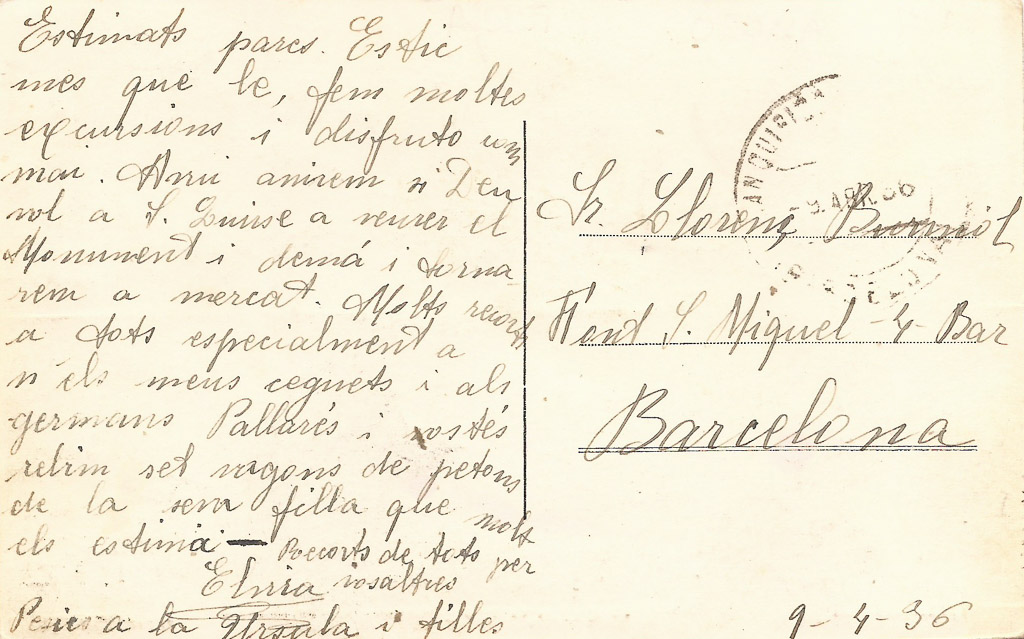 Estimats pares. Estic
mes que be, fem moltes
excursions i disfruto um
mai. Avui anirem si Deu
vol a S. Luise a veurer el
Monument i demá i torna
rem a mercat. Molts recorts
a tots especialment a
n'els meus ceguets i als
germans Pallarés i vostés
rebin set vagons de petons
de la seva filla que molt
els estima — Recorts de tots per
Elvira vosaltres
a la Ursula i filles
Sr. Llorenç
Font S. Miquel - 4 - Bar
Barcelona
9 - 4 - 36
9 ABR. 36